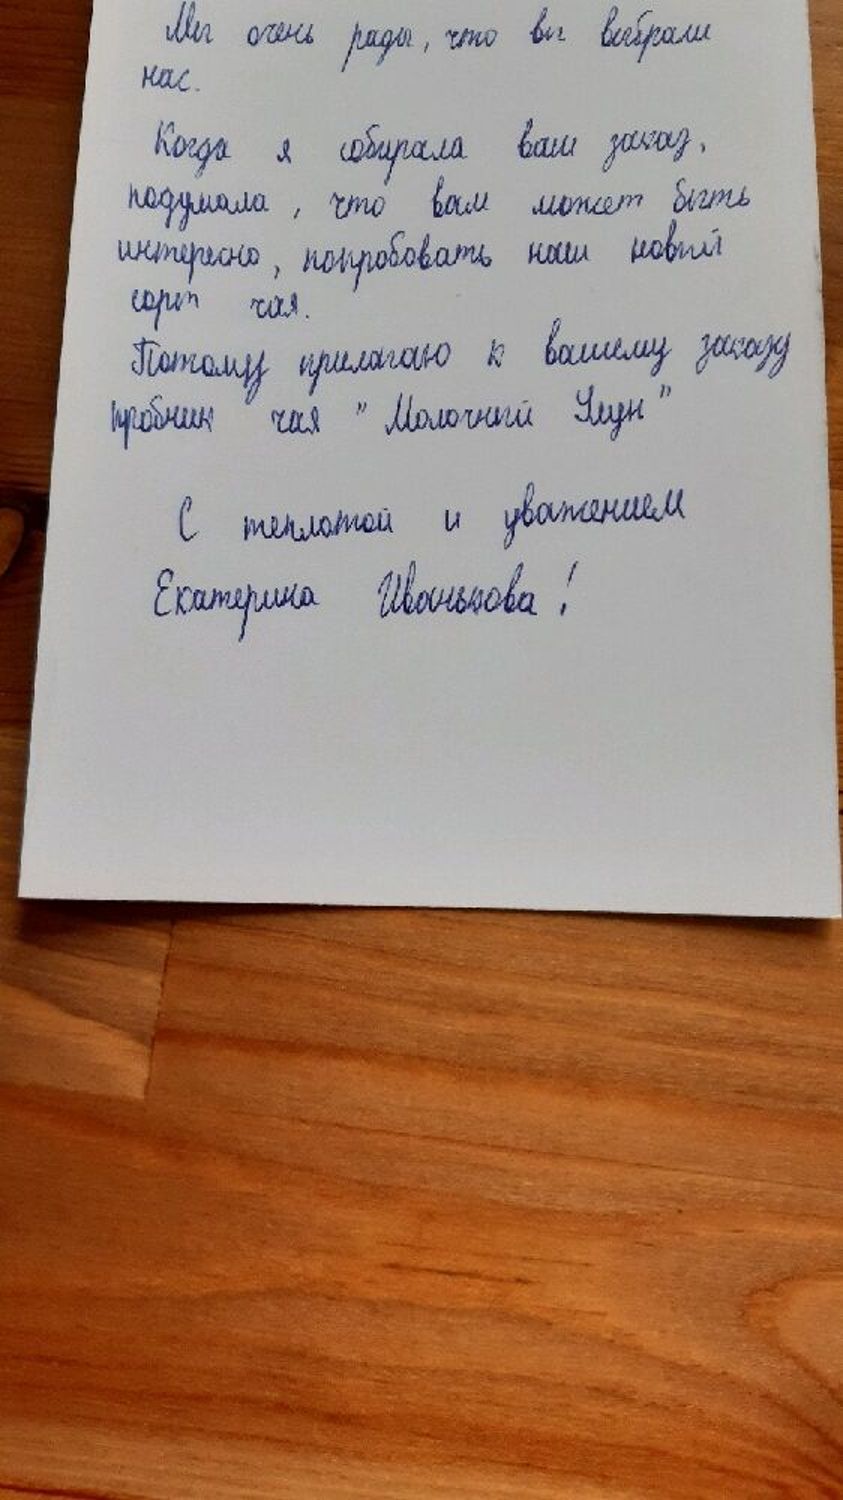 Мы очень рады, что вы выбрали
нас.
Когда я собирала ваш заказ,
подумала, что вам может быть
интересно, попробовать наш новый
сорт чая.
Потому прилагаю к вашему заказу
пробник чая "Молочный Улун"
С теплотой и уважением
Екатерина Иванькова!